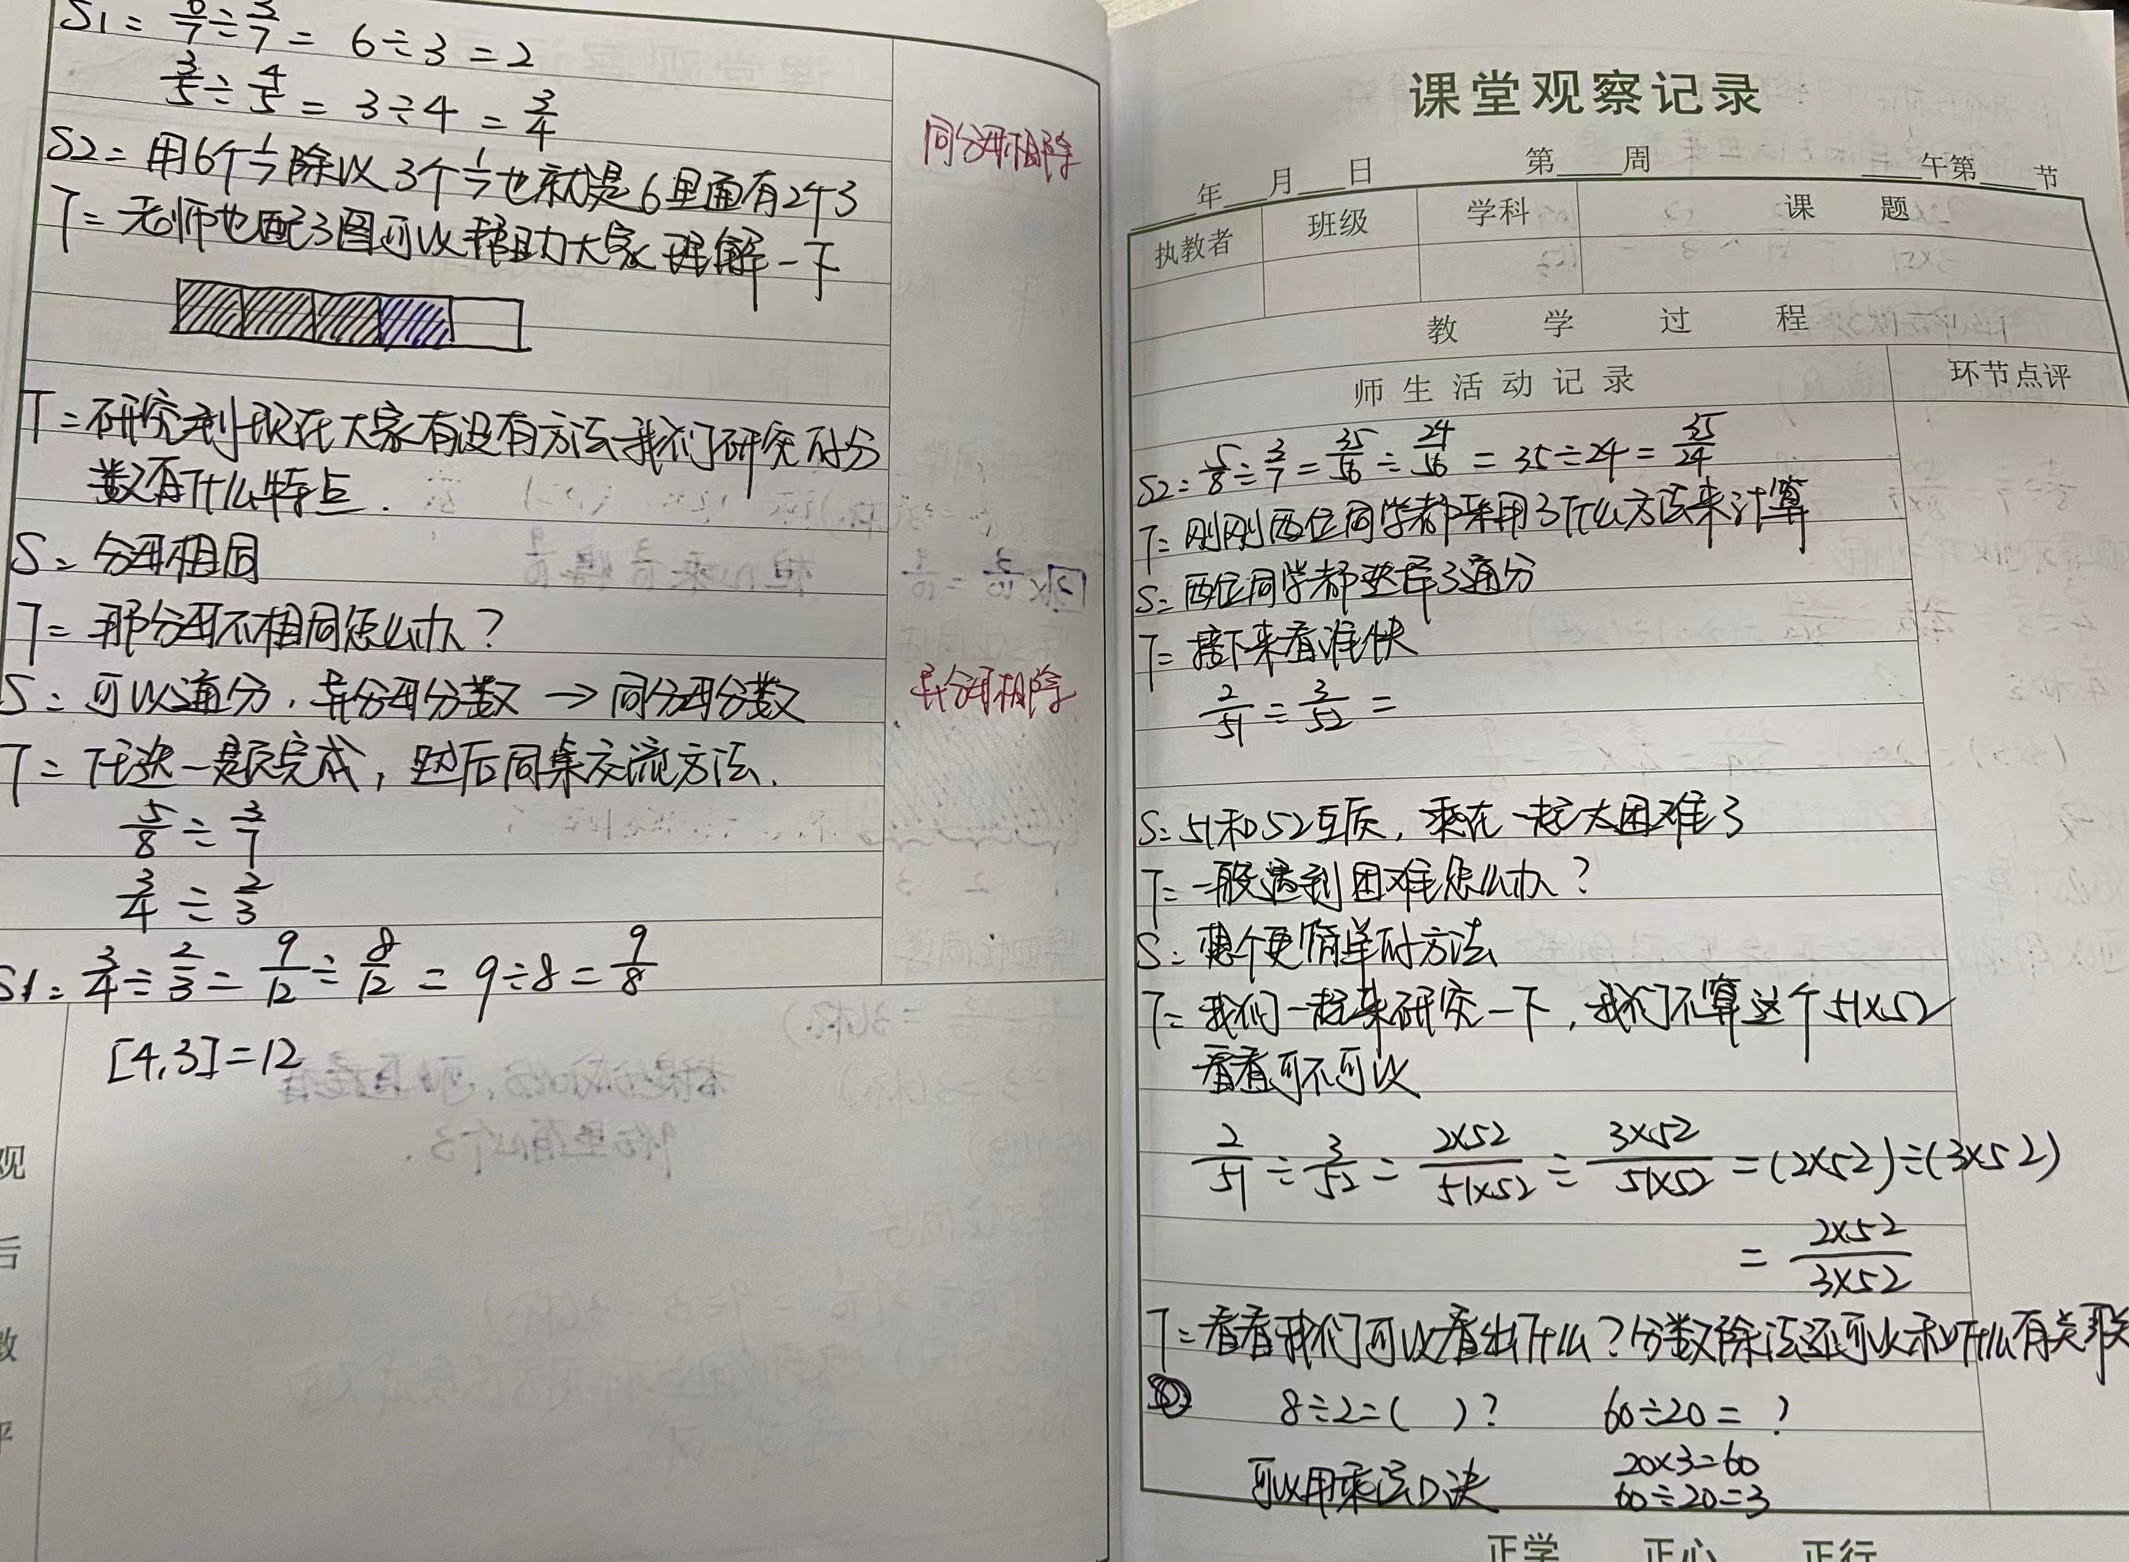 S1= 6/7÷3/7 = 6÷3 =2
3/5÷4/5 = 3÷4 = 3/4
S2= 用6个1/7除以3个1/7也就是6里面有2个3
T= 老师也配了图可以帮助大家理解一下
T=研究到现在大家有没有方法我们研究的分
数有什么特点.
S= 分母相同
T= 那分母不相同怎么办?
S= 可以通分,异分母分数 → 同分母分数
T= 任选一题完成,然后同桌交流方法.
5/8 ÷ 3/7
3/4 ÷ 2/3
S1= 3/4÷2/3= 9/12÷8/12 = 9÷8= 9/8
[4,3]=12
同分母相除
异分母相除
观
后
教
评
课堂观察记录
年 月 日 第 周 午第 节
执教者 班级 学科 课 题
教 学 过 程
师生活动记录 环节点评
S2= 5/8÷3/7=35/56÷24/56 = 35÷24 = 35/24
T= 刚刚两位同学都采用了什么方法来计算
S= 两位同学都选择了通分
T= 接下来看谁快
2/51÷3/52=
S=51和52互质,乘在一起太困难了
T=一般遇到困难怎么办?
S= 想个更简单的方法
T= 我们一起来研究一下,我们不算这个51×52
看看可不可以
2/51÷3/52= 2×52/51×52÷3×52/51×52=(2×52)÷(3×52)
= 2×52/3×52
T=看看我们可以看出什么?分数除法还可以和什么有关联
8÷2=( )? 60÷20= ?
可以用乘法口决 20×3=60
60÷20=3
正学 正心 正行